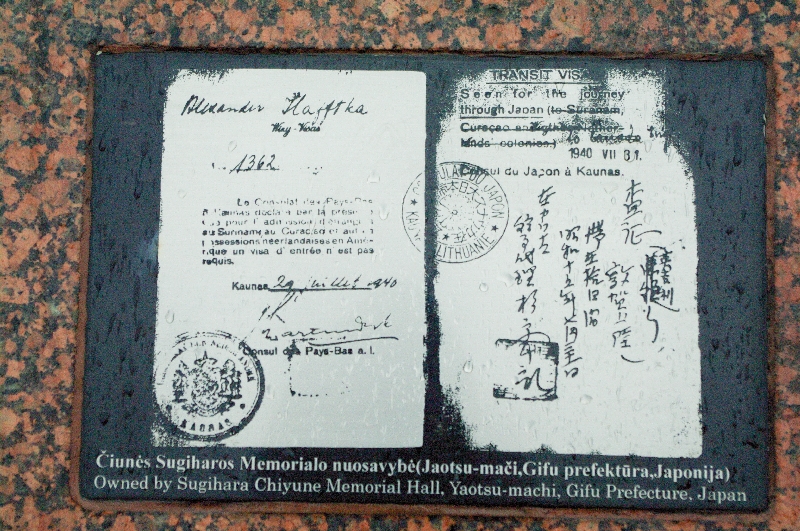 Alexander Hafftka
Way-Visas
1362
Le Consulat des Pays-Bas
à Kaunas déclare par la présen-
que pour l'admission d'étrangers
au Surinam, au Curaçao et autres
possessions néerlandaises en Amé-
rique un visa d'entrée n'est pas
requis.
Kaunas, 29 juillet 1940
Consul des Pays-Bas a. i.
KAUNAS
TRANSIT VISA
Seen for the journey
through Japan (to Surinam,
Curaçao and other Nether-
lands colonies.) to Canada
1940 VII 31.
Consul du Japon à Kaunas.
CONSULAT DU JAPON
LITHUANIE
査証
敦賀上陸
滞在拾日間
昭和十五年七月三一日
在カウナス
領事代理 杉原
Čiunės Sugiharos Memorialo nuosavybė(Jaotsu-mači,Gifu prefektūra,Japonija)
Owned by Sugihara Chiyune Memorial Hall, Yaotsu-machi, Gifu Prefecture, Japan